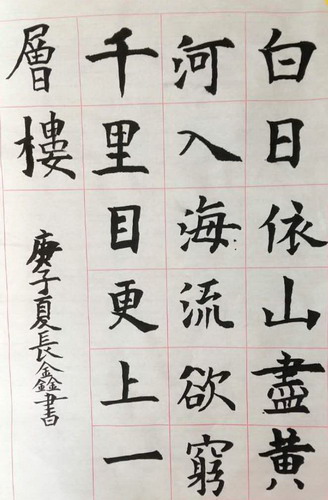 白日依山盡黃
河入海流欲窮
千里目更上一
層樓
庚子夏長鑫書